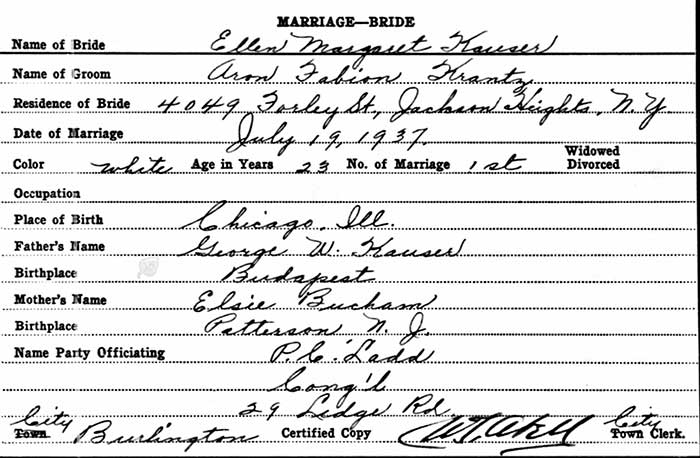 MARRIAGE—BRIDE
Name of Bride Ellen Margaret Kauser
Name of Groom Aron Fabion Krantz
Residence of Bride 4049 Forley St, Jackson Heights, N.Y.
Date of Marriage July 19, 1937.
Color white Age in Years 23 No. of Marriage 1st Widowed Divorced
Occupation
Place of Birth Chicago, Ill.
Father's Name George W. Kauser
Birthplace Budapest
Mother's Name Elsie Bucham
Birthplace Patterson N. J.
Name Party Officiating P. C. Ladd
Cong'l
29 Ledge Rd
City City
Town Burlington Certified Copy Town Clerk.